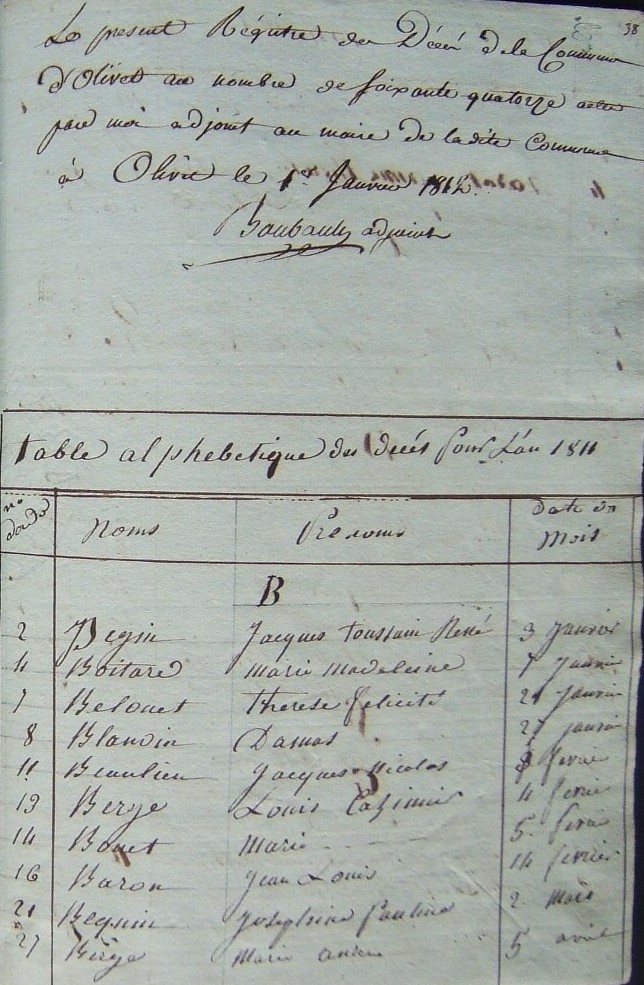 38
Le present Régistre des Décès de la Commune
d'Olivet au nombre de soixante quatorze actes
par moi adjoint au maire de ladite Commune
à Olivet le 1er Janvier 1812.
adjoint
table alphebetique des decés pour L'an 1811
no d'ordre Noms Prenoms Date du Mois
B
2 Begin Jacques toussain René 3 Janvier
4 Boitard marie madeleine 7 Janvier
7 Belouet therese felicité 21 Janvier
8 Blandin Damas 27 Janvier
11 Beaulieu Jacques Nicolas fevrier
13 Berge Louis Cazimir 4 fevrier
14 Bouet Marie 5 fevrier
16 Baron Jean Louis 14 fevrier
21 Begnin Josephine Pauline 2 Mars
27 Berge Marie anne 5 avril